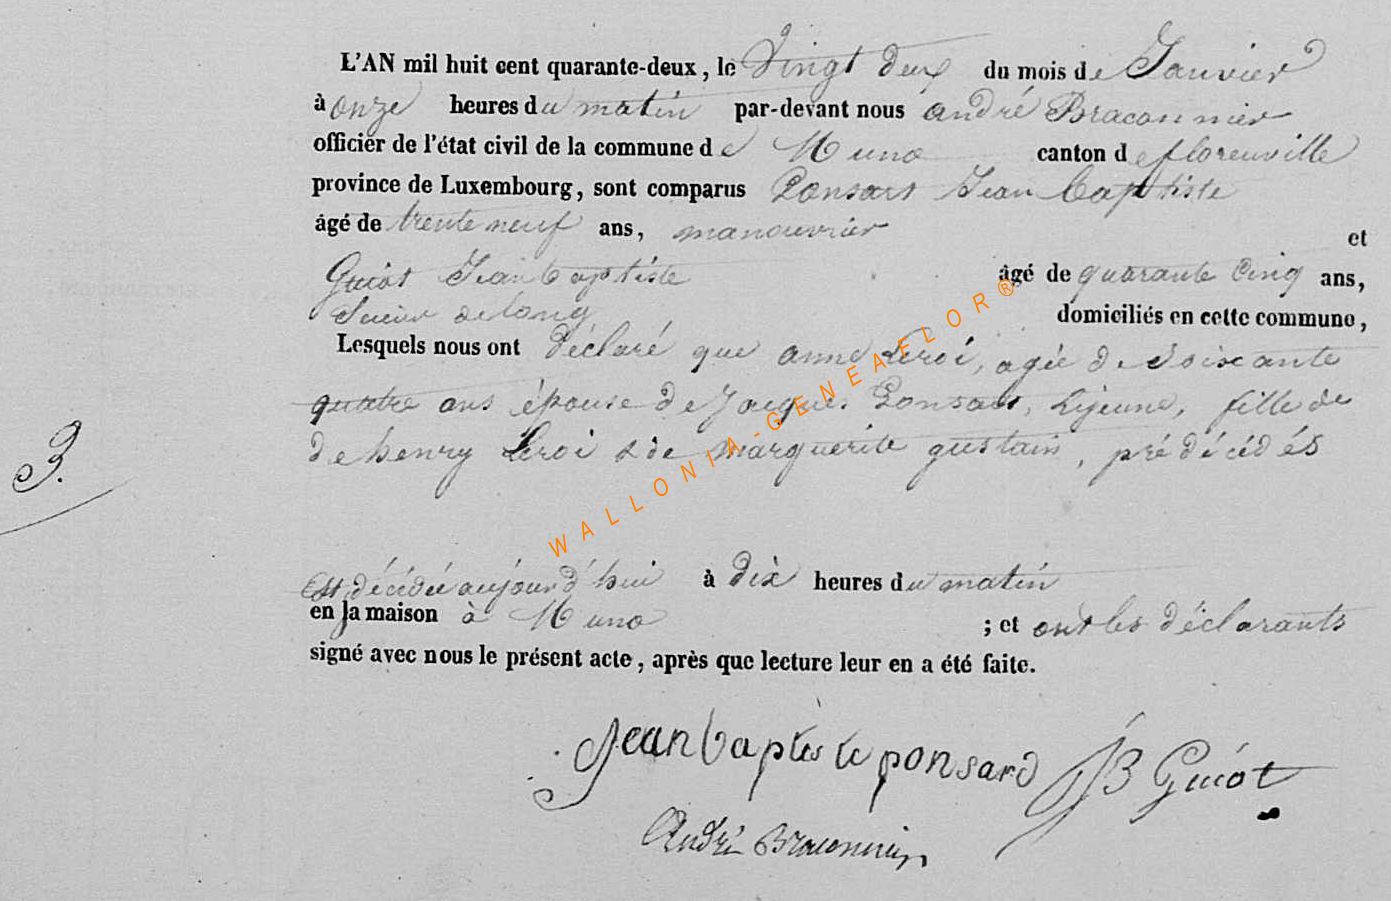 L'AN mil huit cent quarante-deux, le Vingt deux du mois de Janvier
à onze heures du matin par-devant nous andré Braconnier
officier de l'état civil de la commune de Muno canton de florenville
province de Luxembourg, sont comparus Ponsart Jean baptiste
âgé de trente neuf ans, manouvrier et
Guiot Jean baptiste âgé de quarante Cinq ans,
Scieur de long domiciliés en cette commune,
Lesquels nous ont déclaré que anne Leroi, agée de Soixante
quatre ans épouse de Jacques Ponsart, Lejeune, fille de
de henry Leroi & de marguerite gustain, prédécédés
3.
Est décédée aujourd'hui à dix heures du matin
en la maison à Muno ; et ont les déclarants
signé avec nous le présent acte, après que lecture leur en a été faite.
Jean baptiste ponsard JB Guiot
André Braconnier
WALLONIA-GENEAFLOR®